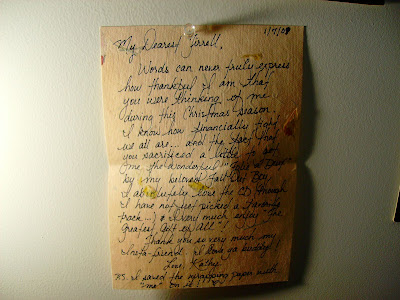 1/7/09
My Dearest Tirrell,
Words can never truly express
how thankful I am that
you were thinking of me
during this Christmas season.
I know how financially tight
we all are... and the fact that
you sacrificed a little to get
me the wonderful "Folie à Deux"
by my beloved Fall Out Boy.
I absolutely love the CD though
I have not yet picked a favorite
track...) & I very much enjoy "The
Greatest Gift of All".
Thank you so very much my
insta-friend. I love ya buddy!
Love, Kathy
P.S. I saved the wrapping paper with
"me" on it!